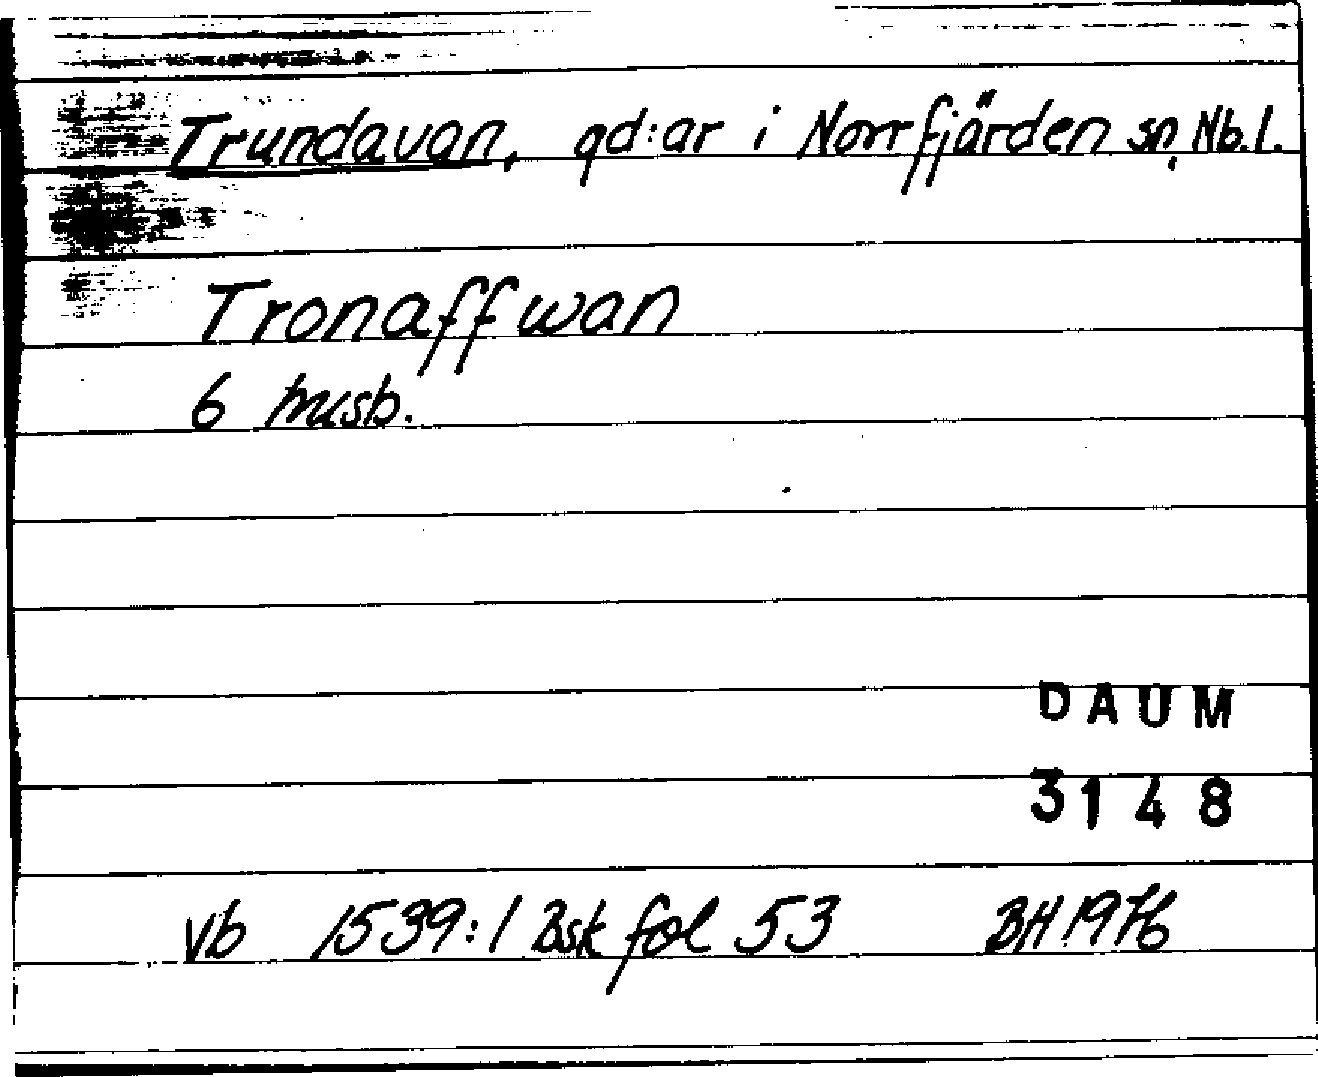 Trundavan, gd:ar i Norrfjärden sn, Nb.l.
Tronaffwan
6 husb.
DAUM
3148
Vb 1539:1 Bsk fol 53 BH 1976